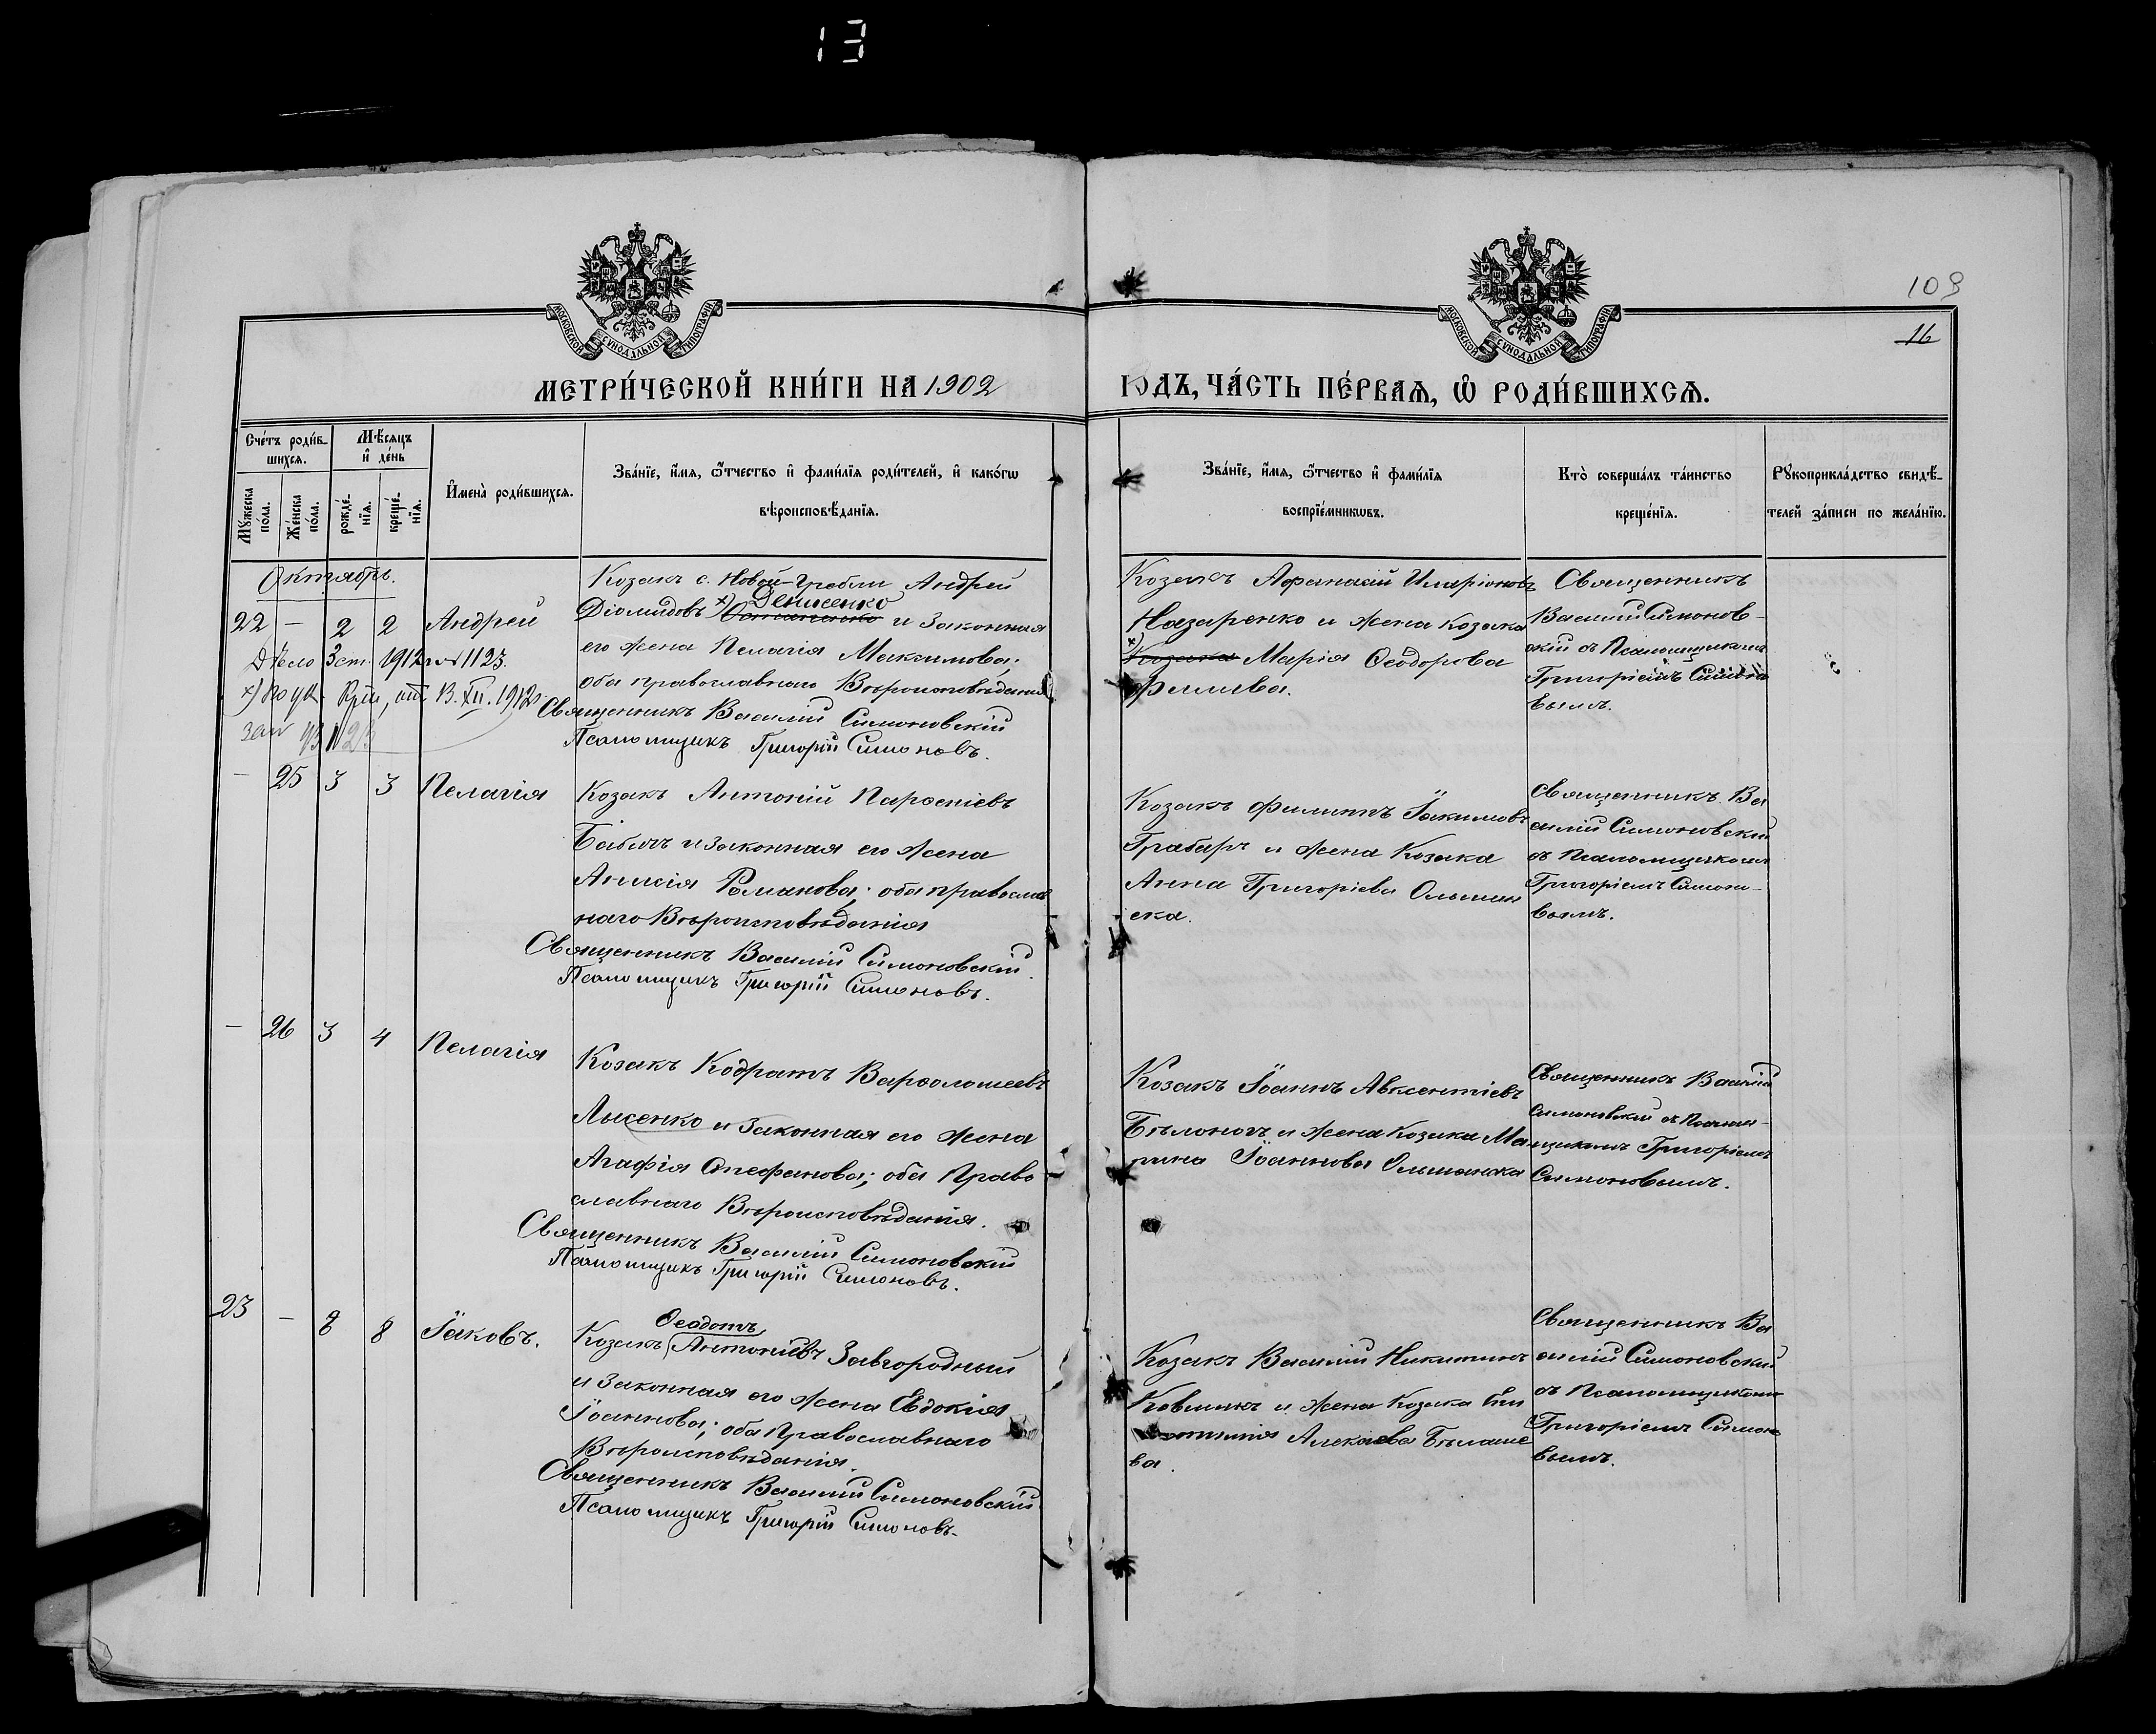 13
109
16
МОСКОВСКОЙ СѴНОДАЛЬНОЙ ТИПОГРАФІИ
МОСКОВСКОЙ СѴНОДАЛЬНОЙ ТИПОГРАФІИ
МЕТРИ́ЧЕСКОЙ КНИ́ГИ НА 1902
ГОДЪ, ЧА́СТЬ ПЕ́РВАѦ, Ѡ҆ РОДИ́ВШИХСѦ.
Сче́тъ роди́в-
шихсѧ.
Мѣ́сѧцъ
и҆ де́нь
Мꙋ́жеска
по́ла.
Же́нска
по́ла.
рожде́-
нїѧ.
креще́-
нїѧ.
И҆мена̀ роди́вшихсѧ.
Зва́нїе, и҆́мѧ, ѻ҆́тчество и҆ фами́лїѧ роди́телей, и҆ како́гѡ
вѣроисповѣ́данїѧ.
Зва́нїе, и҆́мѧ, ѻ҆́тчество и҆ фами́лїѧ
воспрїе́мникѡвъ.
Кто̀ соверша́лъ та́инство
креще́нїѧ.
Рꙋкоприкла́дство свидѣ́-
телей за́писи по жела́нїю.
Октябрь.
22 — 2 2 Андрей
Дѣло 3 ст. 1912 г. № 1123.
х) По ук. 1912 г.
Козакъ с. Новой-Гребли Андрей
Діомидовъ х) Денисенко
и законная
его жена Пелагія Максимова;
оба православнаго Вѣроисповѣданія
Священникъ Василій Симоновскій
Псаломщикъ Григорій Симоновъ.
Козакъ Афанасій Иларіоновъ
Назаренко и жена козака
х) Козака Марія Ѳеодорова
Священникъ
Василій Симонов-
скій съ Псаломщикомъ
Григоріемъ Симоно
вымъ.
— 25 3 3 Пелагія
Козакъ Антоній Парѳеніевъ
Бабичъ и законная его жена
Анисія Романова; оба православ
наго Вѣроисповѣданія
Священникъ Василій Симоновскій.
Псаломщикъ Григорій Симоновъ.
Козакъ Филиппъ Іакимовъ
Грабарь и жена Козака
Анна Григоріева Ольшан
ска.
Священникъ Ва
силій Симоновскій
съ Псаломщикомъ
Григоріемъ Симоно-
вымъ.
— 26 3 4 Пелагія
Козакъ Кодратъ Варѳоломеевъ
Лысенко и законная его жена
Агафія Стефанова; оба Право
славнаго Вѣроисповѣданія.
Священникъ Василій Симоновскій
Псаломщикъ Григорій Симоновъ.
Козакъ Іоаннъ Авксентіевъ
Бѣлоногъ и жена Козака Ма
рина Іоаннова Ольшанска
Священникъ Василій
Симоновскій съ Псалом-
щикомъ Григоріемъ
Симоновымъ.
23 — 8 8 Іаковъ.
Ѳеодотъ
Козакъ Антоніевъ Завгородный
и законная его жена Евдокія
Іоаннова; оба Православнаго
Вѣроисповѣданія.
Священникъ Василій Симоновскій
Псаломщикъ Григорій Симоновъ.
Козакъ Василій Никитинъ
Ковликъ и жена Козака
Алексіева Бѣлаше
ва.
Священникъ Ва
силій Симоновскій
съ Псаломщикомъ
Григоріемъ Симоно
вымъ.